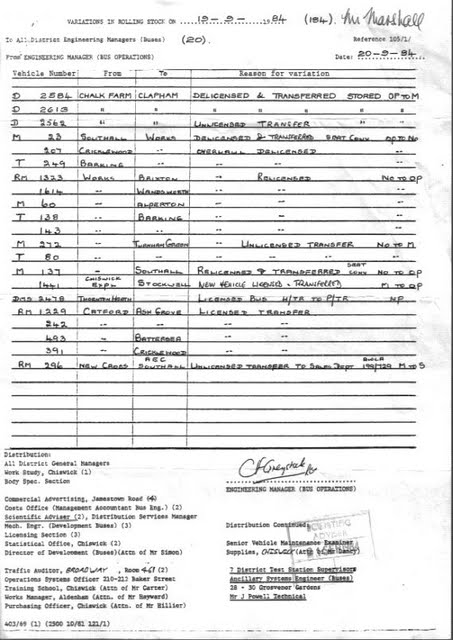 VARIATIONS IN ROLLING STOCK ON 19-9- 1984 (184). Mr Marshall
To All District Engineering Managers (Buses) (20). Reference 105/1/
From ENGINEERING MANAGER (BUS OPERATIONS) Date: 20-9-84
Vehicle Number From To Reason for variation
D 2584 CHALK FARM CLAPHAM DELICENSED & TRANSFERRED STORED OP TO M
D 2613 " " " " " " "
D 2562 " " UNLICENSED TRANSFER " "
M 23 SOUTHALL WORKS DELICENSED & TRANSFERRED SEAT CONV OP TO NO
207 CRICKLEWOOD -- OVERHAUL DELICENSED --
T 249 BARKING -- -- --
RM 1323 WORKS BRIXTON -- RELICENSED NO TO OP
1614 -- WANDSWORTH -- --
M 60 -- ALPERTON -- --
T 138 -- BARKING -- --
143 -- -- -- --
M 272 -- TURNHAM GREEN -- UNLICENSED TRANSFER NO TO M
T 80 -- -- -- --
M 137 -- SOUTHALL RELICENSED & TRANSFERRED SEAT CONV NO TO OP
1441 CHISWICK EXPL STOCKWELL NEW VEHICLE LICENSED & TRANSFERRED M TO OP
DMS 2478 THORNTON HEATH LICENSED BUS H/TR TO P/TR NP
RM 1229 CATFORD ASH GROVE LICENSED TRANSFER
242 -- -- -- --
493 -- BATTERSEA -- --
391 -- CRICKLEWOOD -- --
RM 296 NEW CROSS AEC SOUTHALL UNLICENSED TRANSFER TO SALES DEPT 199/729 M TO S
Distribution:
All District General Managers
Work Study, Chiswick (1)
Body Spec. Section
ENGINEERING MANAGER (BUS OPERATIONS)
Commercial Advertising, Jamestown Road
Costs Office (Management Accountant Bus Eng.) (2)
Scientific Adviser (2), Distribution Services Manager
Mech. Engr. (Development Buses) (3)
Licensing Section (3)
Statistical Office, Chiswick (2)
Director of Development (Buses)(attn of Mr Simon)
Distribution Continued
SCIENTIFIC ADVISER
Senior Vehicle Maintenance Examiner
Supplies, CHISWICK
Traffic Auditor, BROADWAY. ROOM
Operations Systems Officer 210-212 Baker Street
Training School, Chiswick (Attn of Mr Carter)
Works Manager, Aldenham (Attn of Mr Hayward)
Purchasing Officer, Chiswick (Attn. of Mr Hillier)
7 District Test Station Supervisors
Ancillary Systems Engineer (Buses)
28 - 30 Grosvenor Gardens
Mr J Powell Technical
403/69 (1) (1500 10/81 121/1)